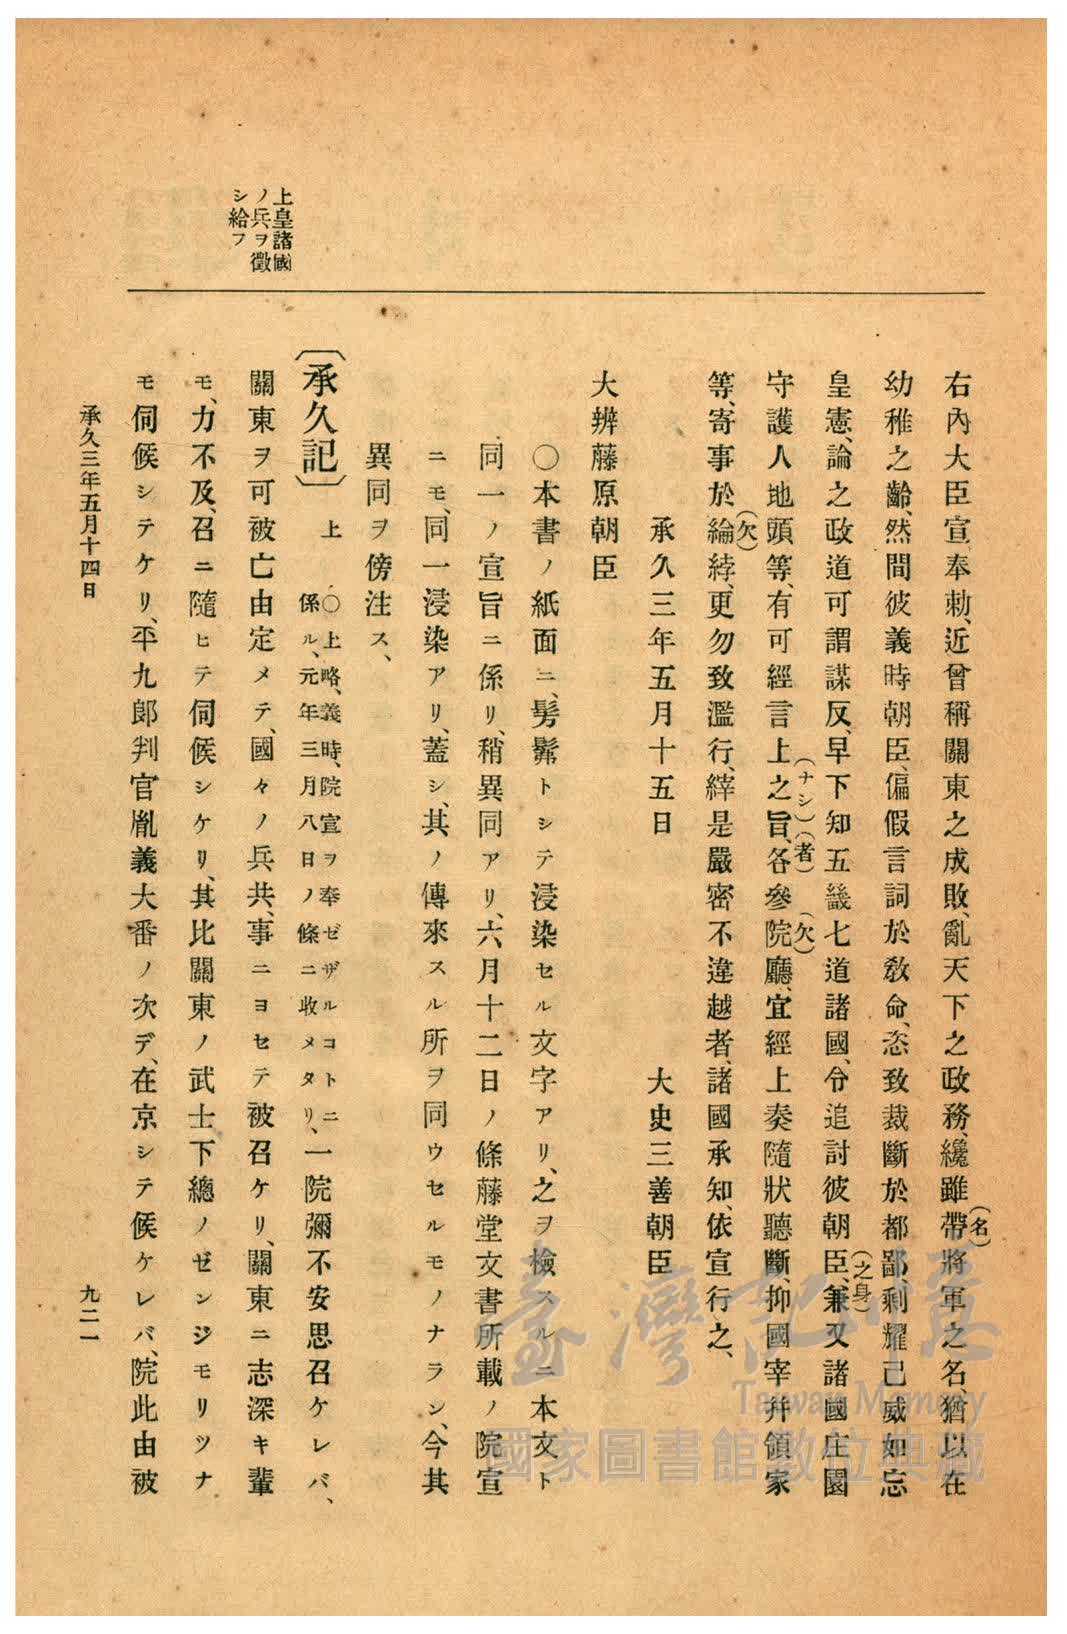 上皇諸國
ノ兵ヲ徵
シ給フ
右內大臣宣、奉勅、近曾稱關東之成敗、亂天下之政務、纔雖帶(名)將軍之名、猶以在
幼稚之齡、然間彼義時朝臣、偏假言詞於敎命、恣致裁斷於都鄙、剩耀己威如忘
皇憲、論之政道可謂謀反、早下知五畿七道諸國、令追討彼朝臣(之身)、兼又諸國庄園
守護人地頭等、有可經言上之旨(ナシ)(者)、各參(欠)院廳、宜經上奏、隨狀聽斷、抑國宰幷領家
等、寄事於(欠)綸綍、更勿致濫行、縡是嚴密不違越者、諸國承知、依宣行之、
承久三年五月十五日　大史三善朝臣
大辨藤原朝臣
〇本書ノ紙面ニ、髣髴トシテ浸染セル文字アリ、之ヲ檢スルニ本文ト
同一ノ宣旨ニ係リ、稍異同アリ、六月十二日ノ條藤堂文書所載ノ院宣
ニモ、同一浸染アリ、蓋シ、其ノ傳來スル所ヲ同ウセルモノナラン、今其
異同ヲ傍注ス、
〔承久記〕上　〇上略、義時、院宣ヲ奉ゼザルコトニ係ル、元年三月八日ノ條ニ收メタリ、一院彌不安思召ケレバ、
關東ヲ可被亡由定メテ、國々ノ兵共、事ニヨセテ被召ケリ、關東ニ志深キ輩
モ、力不及、召ニ隨ヒテ伺候シケリ、其比關東ノ武士下總ノゼンジモリツナ
モ伺候シテケリ、平九郎判官胤義大番ノ次デ、在京シテ候ケレバ、院此由被
承久三年五月十四日
九二一
臺灣記憶
Taiwan Memory
國家圖書館數位典藏